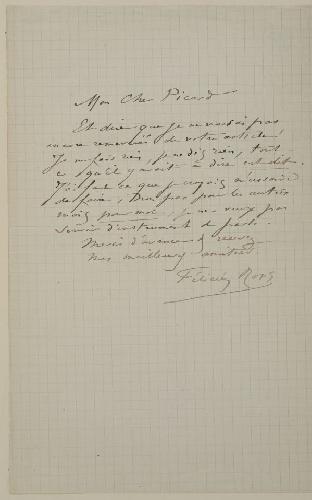 Mon Cher Picard
Et dire que je ne vous ai pas
encore remercié de votre article !
Je ne fais rien, je ne dis rien, tout
ce qu'il y avait à dire est dit.
J'ai fait ce que je croyais nécessaire
de faire, non pas pour les autres
mais pour moi, je ne veux pas
servir d'instrument de
Merci d'avance & recevez
mes meilleures amitiés
Félicien Rops